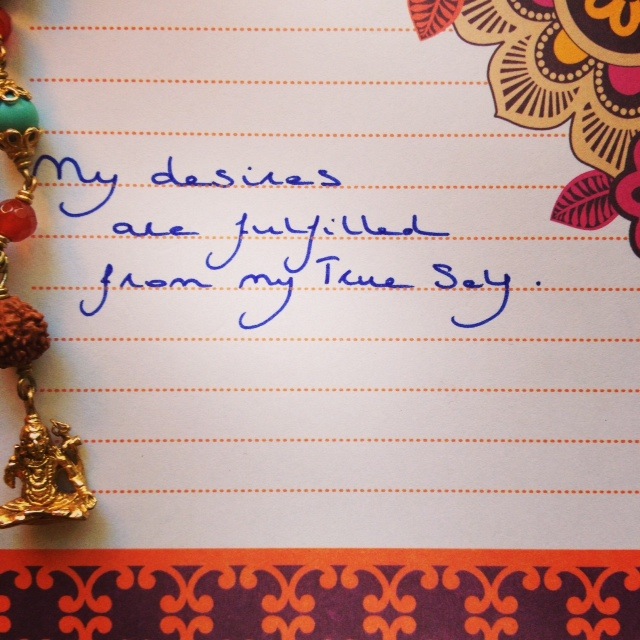 My desires
are fulfilled
from my True Self.